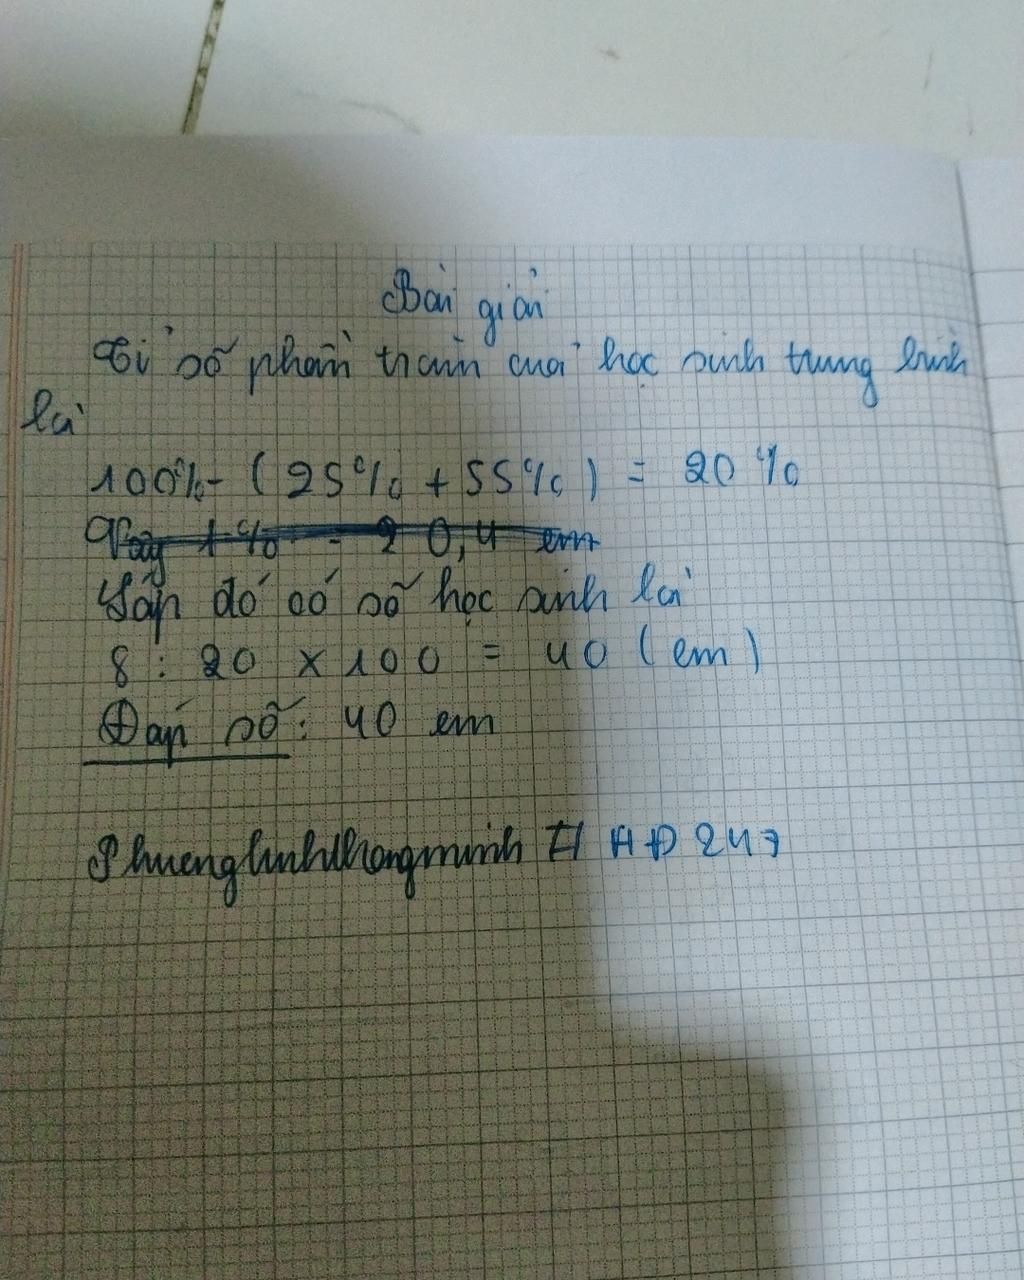 Bài giải
Tỉ số phần trăm của học sinh trung bình
là
100% - ( 25% + 55% ) = 20 %
Vậy 1% = 20,4 em
Lớp đó có số học sinh là
8 : 20 x 100 = 40 ( em )
Đáp số : 40 em
Phuonglinhthongminh HHĐ247